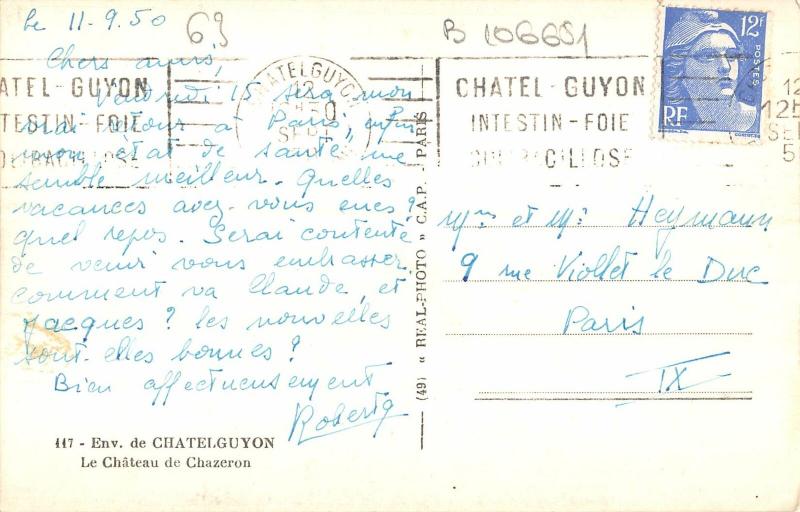 le 11-9.50
69
B 106651
Chers amis,
Vendredi 15 sera mon
vrai retour à Paris, enfin
mon état de santé me
semble meilleur. Quelles
vacances avez-vous eues ?
quel repos. Serai contente
de venir vous embrasser.
comment va Claude, et
Jacques ? les nouvelles
sont-elles bonnes ?
Bien affectueusement
117 - Env. de CHATELGUYON
Le Château de Chazeron
(49) « REAL-PHOTO » C.A.P. - PARIS
ATEL-GUYON
TESTIN-FOIE
CHATELGUYON
CHATEL-GUYON
INTESTIN-FOIE
COLIBACILLOSE
12F
POSTES
RF
Mme et Mr Heymann
9 rue Viollet le Duc
Paris
IX